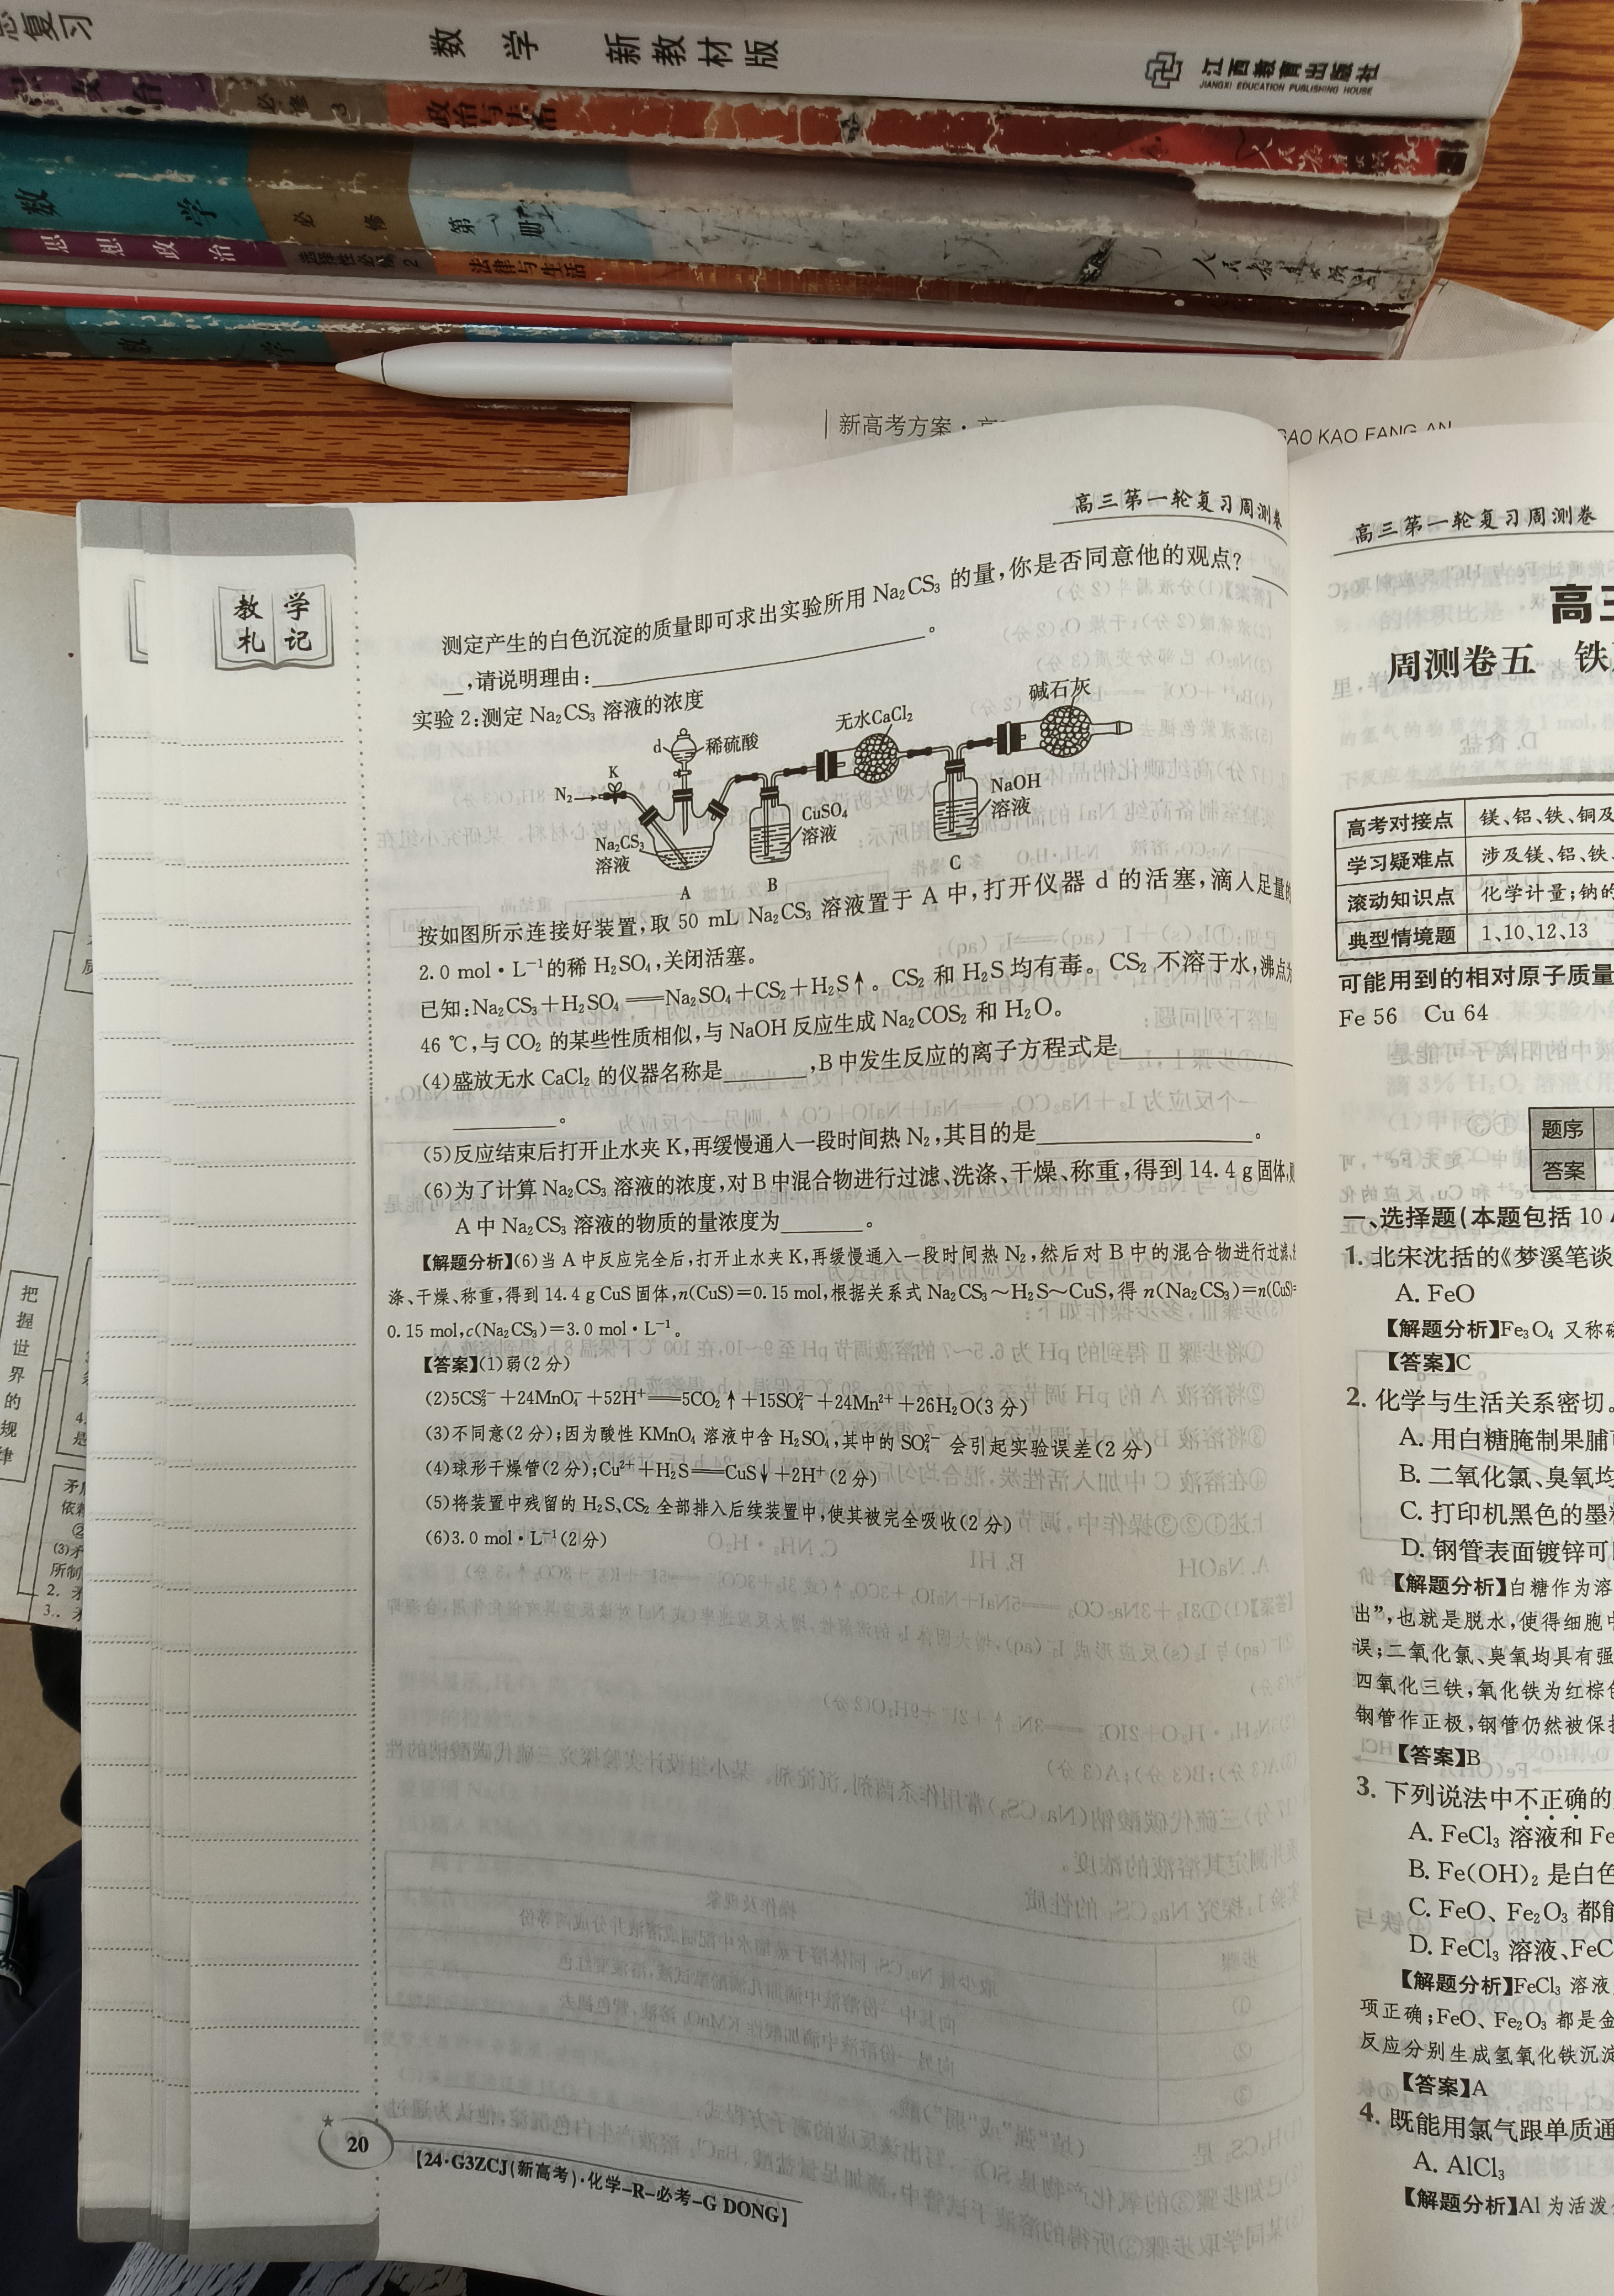 总复习
数 学 新教材版
江西教育出版社
JIANGXI EDUCATION PUBLISHING HOUSE
必修 3
政治与法治
数 学 必 修 第一册
思想政治 选择性必修2 法律与生活
数 学
新高考方案·高
GAO KAO FANG AN
高三第一轮复习周测卷
教学
札记
测定产生的白色沉淀的质量即可求出实验所用 Na₂CS₃ 的量,你是否同意他的观点?
,请说明理由:。
实验 2:测定 Na₂CS₃ 溶液的浓度
碱石灰
无水CaCl₂
d 稀硫酸
K
N₂
Na₂CS₃
溶液
CuSO₄
溶液
NaOH
溶液
A
B
C
按如图所示连接好装置,取 50 mL Na₂CS₃ 溶液置于 A 中,打开仪器 d 的活塞,滴入足量的
2.0 mol·L⁻¹的稀 H₂SO₄,关闭活塞。
已知:Na₂CS₃+H₂SO₄══Na₂SO₄+CS₂+H₂S↑。CS₂ 和 H₂S 均有毒。CS₂ 不溶于水,沸点为
46 ℃,与 CO₂ 的某些性质相似,与 NaOH 反应生成 Na₂COS₂ 和 H₂O。
(4)盛放无水 CaCl₂ 的仪器名称是________,B 中发生反应的离子方程式是________
________。
(5)反应结束后打开止水夹 K,再缓慢通入一段时间热 N₂,其目的是________。
(6)为了计算 Na₂CS₃ 溶液的浓度,对 B 中混合物进行过滤、洗涤、干燥、称重,得到 14.4 g 固体,则
A 中 Na₂CS₃ 溶液的物质的量浓度为________。
【解题分析】(6)当 A 中反应完全后,打开止水夹 K,再缓慢通入一段时间热 N₂,然后对 B 中的混合物进行过滤、
涤、干燥、称重,得到 14.4 g CuS 固体,n(CuS)=0.15 mol,根据关系式 Na₂CS₃~H₂S~CuS,得 n(Na₂CS₃)=n(CuS)=
0.15 mol,c(Na₂CS₃)=3.0 mol·L⁻¹。
【答案】(1)弱(2 分)
(2)5CS₃²⁻+24MnO₄⁻+52H⁺══5CO₂↑+15SO₄²⁻+24Mn²⁺+26H₂O(3 分)
(3)不同意(2 分);因为酸性 KMnO₄ 溶液中含 H₂SO₄,其中的 SO₄²⁻ 会引起实验误差(2 分)
(4)球形干燥管(2 分);Cu²⁺+H₂S══CuS↓+2H⁺(2 分)
(5)将装置中残留的 H₂S、CS₂ 全部排入后续装置中,使其被完全吸收(2 分)
(6)3.0 mol·L⁻¹(2 分)
20
【24·G3ZCJ(新高考)·化学-R-必考-G DONG】
把
握
世
界
的
规
律
高三第一轮复习周测卷
高三
周测卷五 铁
高考对接点 镁、铝、铁、铜及
学习疑难点 涉及镁、铝、铁、
滚动知识点 化学计量;钠的
典型情境题 1、10、12、13
可能用到的相对原子质量
Fe 56 Cu 64
题序
答案
一、选择题(本题包括 10
1. 北宋沈括的《梦溪笔谈
A. FeO
【解题分析】Fe₃O₄ 又称
【答案】C
2. 化学与生活关系密切。
A. 用白糖腌制果脯
B. 二氧化氯、臭氧均
C. 打印机黑色的墨
D. 钢管表面镀锌可
【解题分析】白糖作为溶
出”,也就是脱水,使得细胞
误;二氧化氯、臭氧均具有强
四氧化三铁,氧化铁为红棕
钢管作正极,钢管仍然被保
【答案】B
3. 下列说法中不正确的
A. FeCl₃ 溶液和 Fe
B. Fe(OH)₂ 是白色
C. FeO、Fe₂O₃ 都
D. FeCl₃ 溶液、FeC
【解题分析】FeCl₃ 溶液
项正确;FeO、Fe₂O₃ 都是金
反应分别生成氢氧化铁沉淀
【答案】A
4. 既能用氯气跟单质通
A. AlCl₃
【解题分析】Al 为活泼